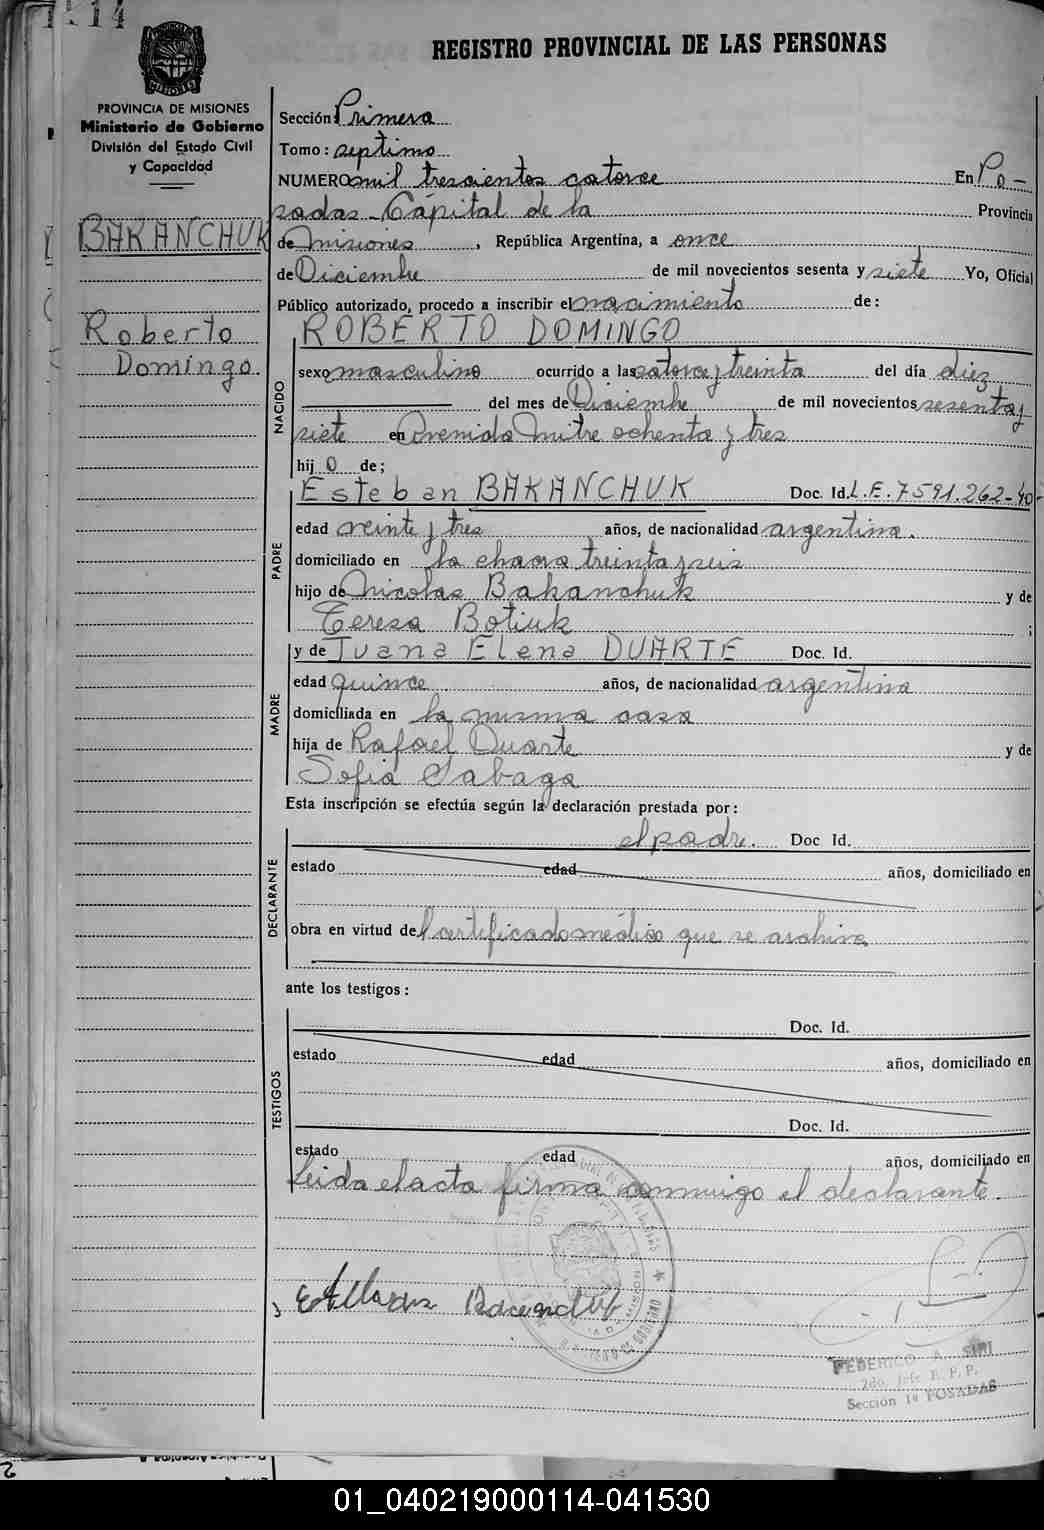 REGISTRO PROVINCIAL DE LAS PERSONAS
PROVINCIA DE MISIONES
Ministerio de Gobierno
División del Estado Civil
y Capacidad
BAKANCHUK
Roberto
Domingo.
Sección: Primera
Tomo: septimo
NUMERO mil trescientos catorce En Po-
sadas-Capital de la Provincia
de Misiones, República Argentina, a once
de Diciembre de mil novecientos sesenta y siete Yo, Oficial
Público autorizado, procedo a inscribir el nacimiento de:
NACIDO
ROBERTO DOMINGO
sexo masculino ocurrido a las catorce y treinta del día diez
del mes de Diciembre de mil novecientos sesenta y
siete en Avenida Mitre ochenta y tres
hijo de;
PADRE
Esteban BAKANCHUK Doc. Id. L.E. 7591.262-40-
edad veinte y tres años, de nacionalidad argentina.
domiciliado en la chacra treinta y seis
hijo de Nicolas Bakanchuk y de
Teresa Botiuk ;
MADRE
y de Juana Elena DUARTE Doc. Id.
edad quince años, de nacionalidad argentina
domiciliada en la misma casa
hija de Rafael Duarte y de
Sofia Gabaga
Esta inscripción se efectúa según la declaración prestada por:
DECLARANTE
el padre. Doc Id.
estado edad años, domiciliado en
obra en virtud del certificado médico que se archiva
ante los testigos:
TESTIGOS
Doc. Id.
estado edad años, domiciliado en
Doc. Id.
estado edad años, domiciliado en
Leida el acta firma conmigo el declarante.
FEDERICO A. SIRI
2do. Jefe R. P. P.
Sección 1ª POSADAS
01_040219000114-041530